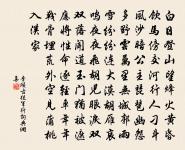 白日登山望烽火黃昏
飲馬傍交河行人刁斗
風沙暗公主琵琶幽怨
多野雲萬里無城郭雨
雪紛紛連大漠胡雁哀
鳴夜夜飛胡兒眼淚雙
雙落聞道玉門猶被遮
應將性命逐輕車年年
戰骨埋荒外空見蒲萄
入漢家
李頎古從軍行詞典網